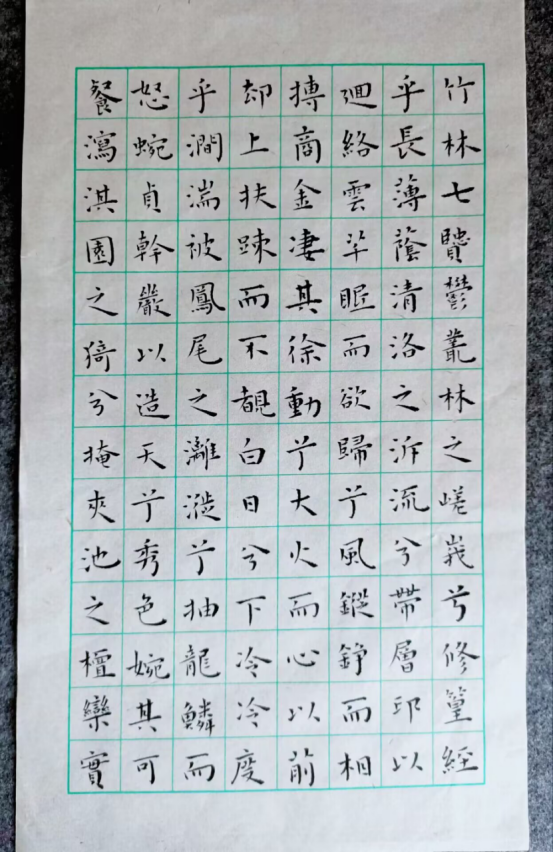 竹林七賢鬱叢林之嵯峩兮修篁經
乎長薄蔭清洛之泝流兮帶層邱以
廻絡雲芊眠而欲歸兮風鏦錚而相
摶商金凄其徐動兮大火而心以前
却上扶踈而不覩白日兮下冷冷度
乎澗湍被鳳尾之灕漇兮抽龍鱗而
怒蜿貞幹嚴以造天兮秀色婉其可
餐瀉淇園之猗兮掩夾池之檀欒實